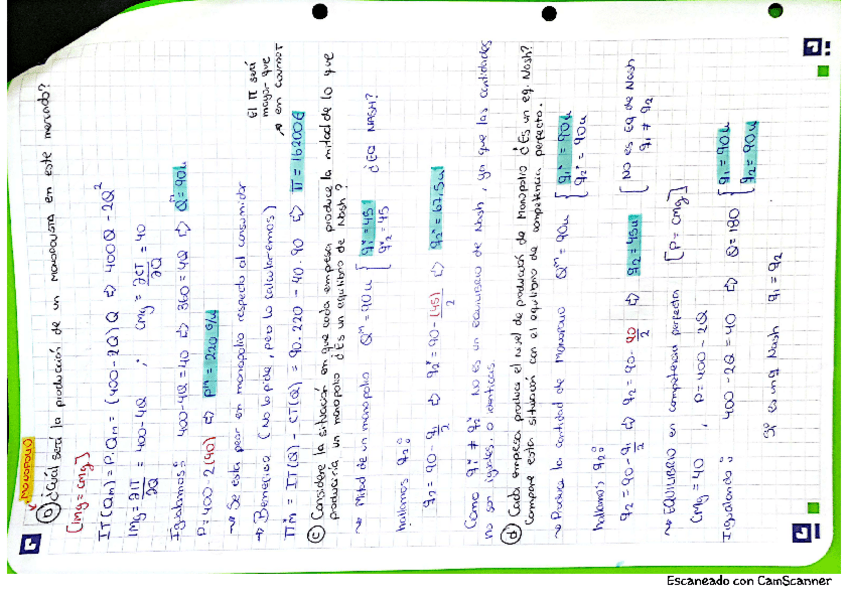 MONOPOLIO
b) ¿Cuál será la producción de un monopolista en este mercado?
[IMg = CMg]
IT(Qm) = P·Qm = (400-2Q)Q ⇨ 400Q - 2Q²
IMg = ∂IT/∂Q = 400-4Q ; CMg = ∂CT/∂Q = 40
Igualamos: 400-4Q = 40 ⇨ 360 = 4Q ⇨ Qm = 90u
P = 400-2(90) ⇨ Pm = 220 €/u
→ Se está peor en monopolio respecto al consumidor
→ Beneficio (No lo pide, pero lo calcularemos)
El π será mayor que en Cournot
πm = IT(Q) - CT(Q) = 90·220 - 40·90 ⇨ π = 16200€
c) Considere la situación en que cada empresa produce la mitad de lo que
produciría un monopolio ¿Es un equilibrio de Nash?
→ Mitad de un monopolio Qm = 90u { q1* = 45 q2* = 45 ¿EQ NASH?
hallamos q2:
q2 = 90 - q1/2 ⇨ q2* = 90 - (45)/2 ⇨ q2* = 67,5u
Como q1* ≠ q2* No es un equilibrio de Nash, ya que las cantidades
no son iguales, o idénticas
d) Cada empresa produce el nivel de producción de Monopolio ¿Es un eq. Nash?
Compare esta situación con el equilibrio de competencia perfecto.
→ Produce la cantidad de Monopolio Qm = 90u { q1* = 90u q2* = 90u
hallamos q2:
q2 = 90 - q1/2 ⇨ q2 = 90 - 90/2 ⇨ q2 = 45u [ No es Eq de Nash q1 ≠ q2
→ EQUILIBRIO en competencia perfecta [P = CMg]
CMg = 40 , P = 400 - 2Q
Igualando: 400 - 2Q = 40 ⇨ Q = 180 { q1 = 90u q2 = 90u
Sí es un eq Nash q1 = q2
Escaneado con CamScanner